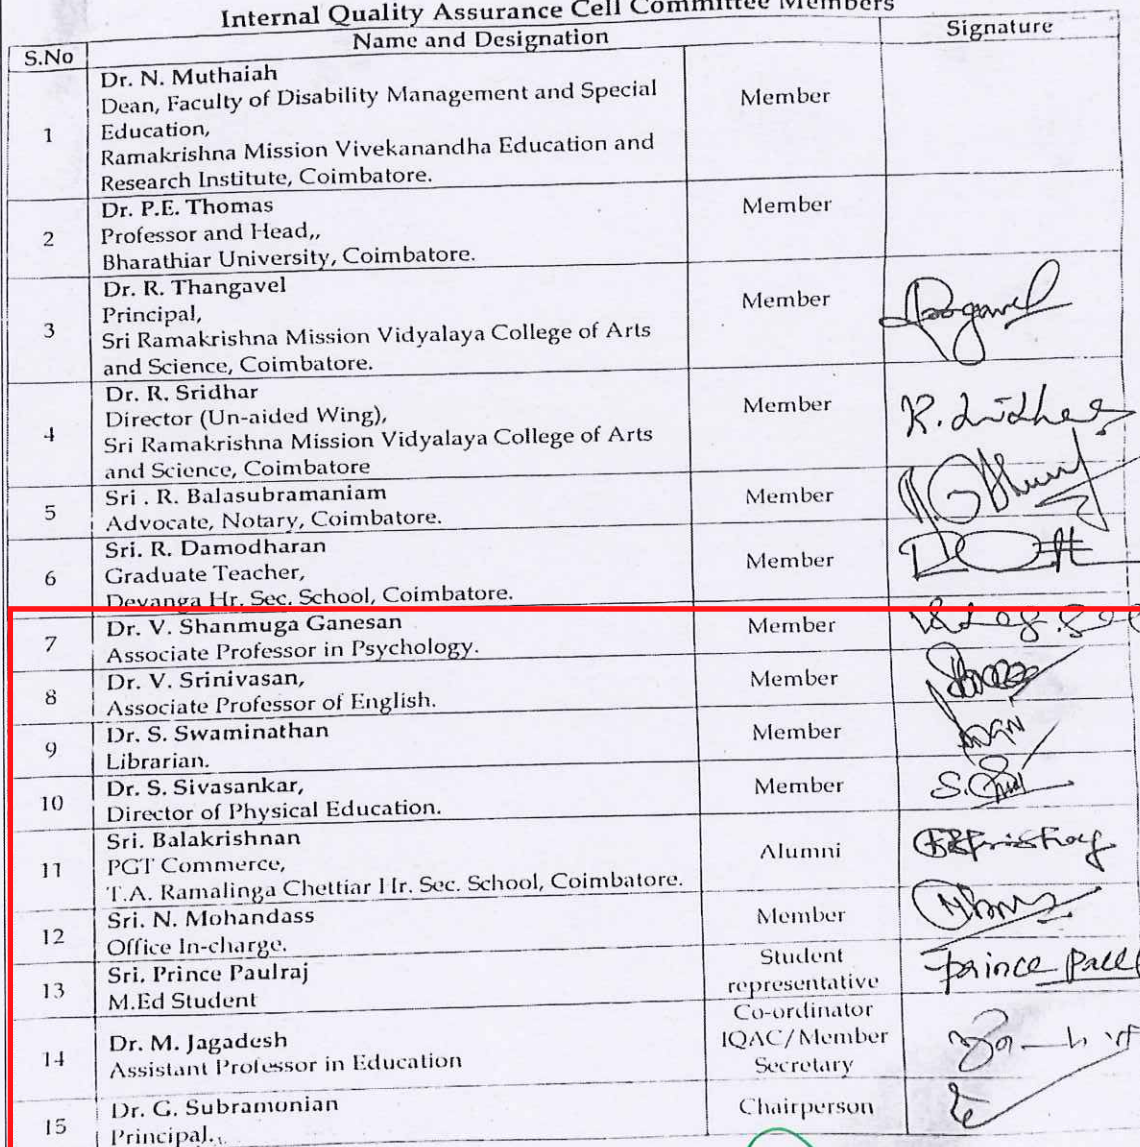 Internal Quality Assurance Cell Committee Members
S.No Name and Designation Signature
1 Dr. N. Muthaiah
Dean, Faculty of Disability Management and Special
Education,
Ramakrishna Mission Vivekanandha Education and
Research Institute, Coimbatore.
Member
2 Dr. P.E. Thomas
Professor and Head,,
Bharathiar University, Coimbatore.
Member
3 Dr. R. Thangavel
Principal,
Sri Ramakrishna Mission Vidyalaya College of Arts
and Science, Coimbatore.
Member
4 Dr. R. Sridhar
Director (Un-aided Wing),
Sri Ramakrishna Mission Vidyalaya College of Arts
and Science, Coimbatore
Member
5 Sri . R. Balasubramaniam
Advocate, Notary, Coimbatore.
Member
6 Sri. R. Damodharan
Graduate Teacher,
Devanga Hr. Sec. School, Coimbatore.
Member
7 Dr. V. Shanmuga Ganesan
Associate Professor in Psychology.
Member
8 Dr. V. Srinivasan,
Associate Professor of English.
Member
9 Dr. S. Swaminathan
Librarian.
Member
10 Dr. S. Sivasankar,
Director of Physical Education.
Member
11 Sri. Balakrishnan
PGT Commerce,
T.A. Ramalinga Chettiar Hr. Sec. School, Coimbatore.
Alumni
12 Sri. N. Mohandass
Office In-charge.
Member
13 Sri. Prince Paulraj
M.Ed Student
Student
representative
Prince
14 Dr. M. Jagadesh
Assistant Professor in Education
Co-ordinator
IQAC/Member
Secretary
15 Dr. G. Subramonian
Principal.
Chairperson